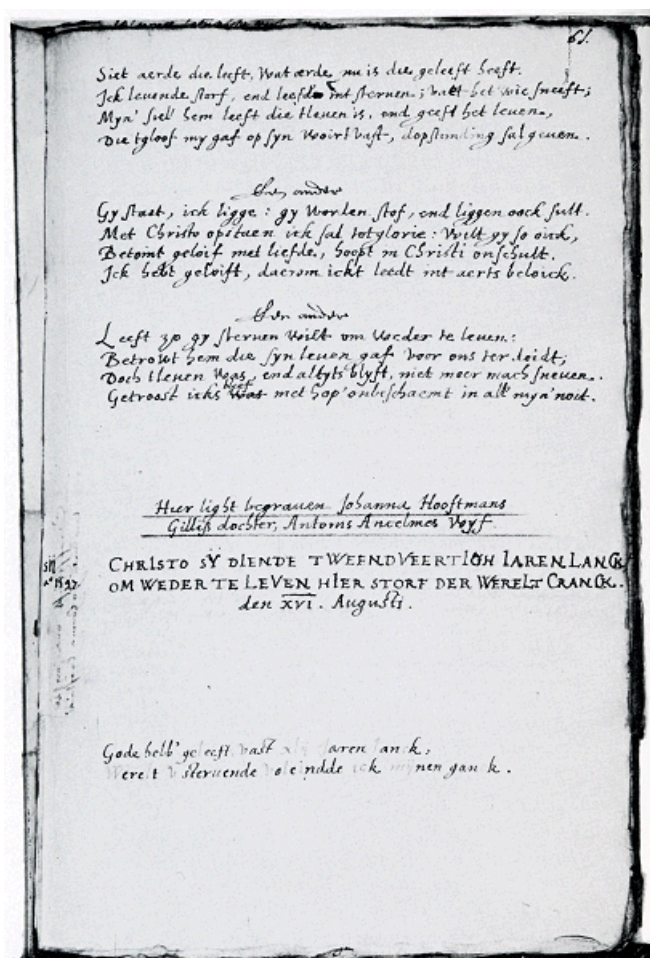 61.
Siet aerde die leeft, wat aerde nu is die geleeft heeft.
Ick levende storf, end leefde int sterven; vatt het wie sneeft;
Myn' siel hem leeft die tleven is, end geeft het leven,
Die tgloof my gaf op syn woirt vast, dopstanding sal geven.
Een ander
Gy staet, ick ligge: gy worden stof, end liggen oock sult.
Met Christo opstaen ick sal tot glorie: wilt gy so oick,
Betoint geloif met liefde, hoopt in Christi onschult.
Ick hebt geloift, daerom ickt leedt int aerts beloick.
Een ander
Leeft zo gy sterven wilt om weder te leven:
Betrowt hem die syn leven gaf voor ons ter doidt;
Doch tleven was, end altyts blyft, niet meer mach sneven.
Getroost icks bleef met hop' onbeschaemt in all' myn' noit.
Hier light begraven Johanna Hooftmans
Gilliß dochter, Antonis Ancelmes Wyf
CHRISTO SŸ DIENDE TWEENDVEERTIGH IAREN LANCK
OM WEDER TE LEVEN HIER STORF DER WERELT CRANCK.
den XVI. Augusti.
Gode hebb' geleeft vast xlij Jaren lanck,
Werelt stervende voleindde ick mynen ganck.